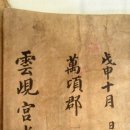 戊申十月 日
萬頃郡
雲峴宮